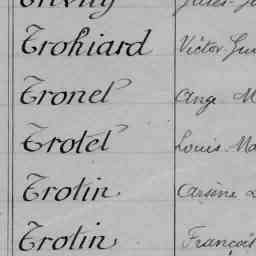 Trohiard Victor
Tronel Ange M
Trotel Louis Ma
Trotin Arsène
Trotin François